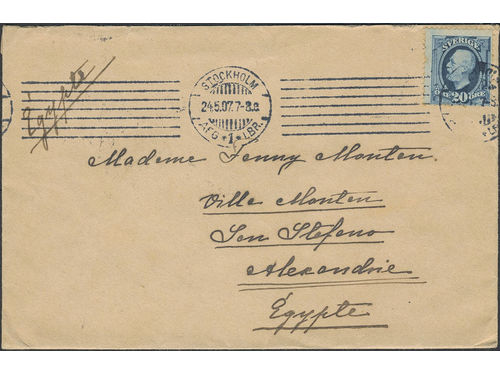 Égypte
STOCKHOLM
24.5.07.7-8.e
AFG.*1*LBR.
SVERIGE
20 ÖRE
Madame Jenny Monten.
Ville Monten
San Stefano
Alexandrie
Égypte